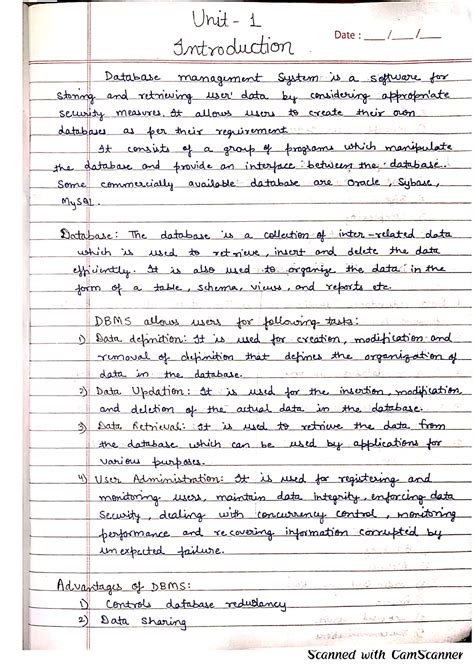 Unit - 1
Date : __/__/__
Introduction
Database management System is a software for
storing and retrieving user' data by considering appropriate
security measures. It allows users to create their own
databases as per their requirement.
It consists of a group of programs which manipulate
the database and provide an interface between the database.
Some commercially available database are Oracle, Sybase,
MySQL.
Database: The database is a collection of inter-related data
which is used to retrieve, insert and delete the data
efficiently. It is also used to organize the data in the
form of a table, schema, views, and reports etc.
DBMS allows users for following tasks:
1) Data definition: It is used for creation, modification and
removal of definition that defines the organization of
data in the database.
2) Data Updation: It is used for the insertion, modification,
and deletion of the actual data in the database.
3) Data Retrieval: It is used to retrieve the data from
the database which can be used by applications for
various purposes.
4) User Administration: It is used for registering and
monitoring users, maintain data integrity, enforcing data
security, dealing with concurrency control, monitoring
performance and recovering information corrupted by
unexpected failure.
Advantages of DBMS:
1) Controls database redudancy
2) Data Sharing
Scanned with CamScanner